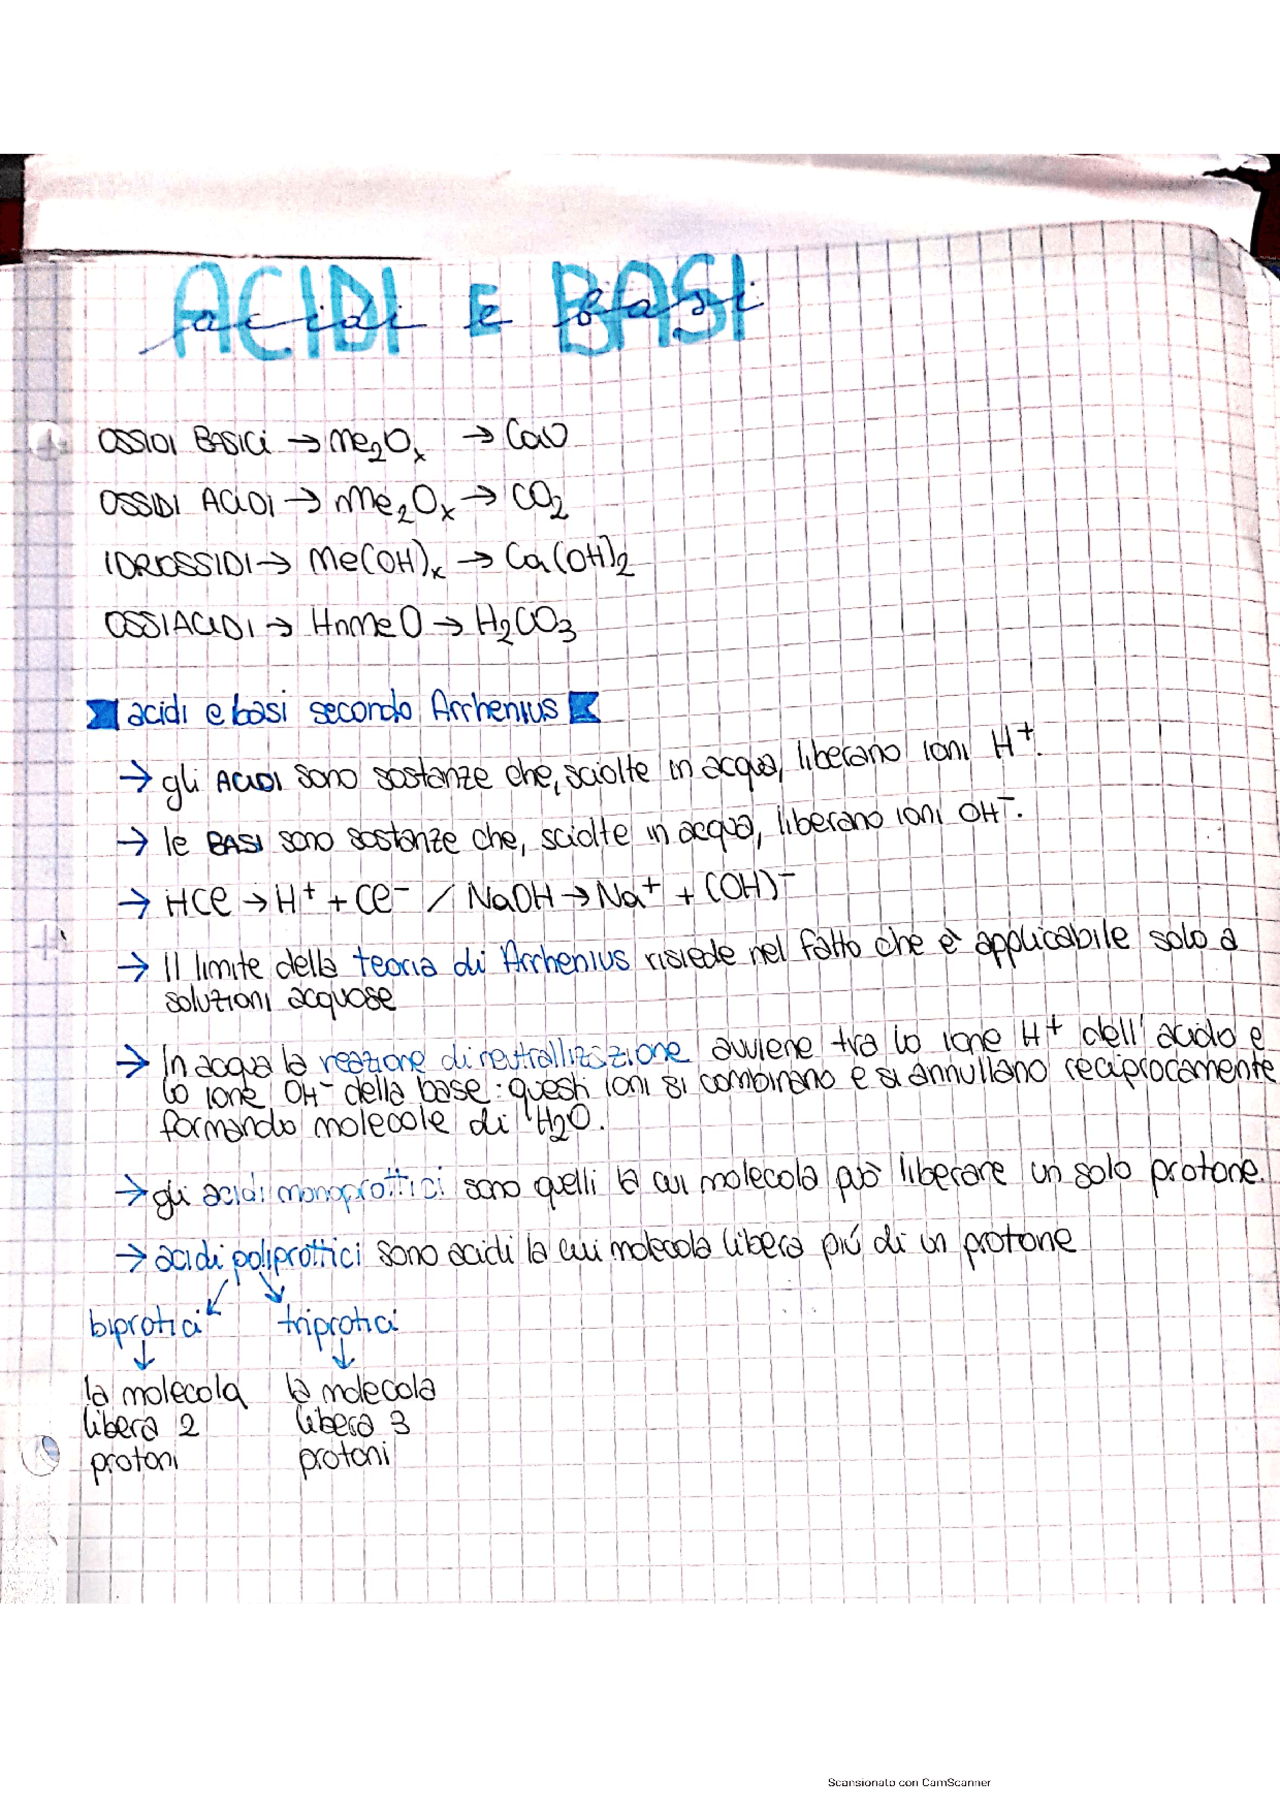 ACIDI E BASI
acidi e basi
OSSIDI BASICI → Me₂Oₓ → CaO
OSSIDI ACIDI → Me₂Oₓ → CO₂
IDROSSIDI → Me(OH)ₓ → Ca(OH)₂
OSSIACIDI → HnMeO → H₂CO₃
acidi e basi secondo Arrhenius
→ gli ACIDI sono sostanze che, sciolte in acqua, liberano ioni H⁺.
→ le BASI sono sostanze che, sciolte in acqua, liberano ioni OH⁻.
→ HCl → H⁺ + Cl⁻ / NaOH → Na⁺ + (OH)⁻
→ Il limite della teoria di Arrhenius risiede nel fatto che è applicabile solo a
soluzioni acquose
→ In acqua la reazione di neutrallizzazione avviene tra lo ione H⁺ dell'acido e
lo ione OH⁻ della base: questi ioni si combinano e si annullano reciprocamente
formando molecole di H₂O.
→ gli acidi monoprottici sono quelli la cui molecola può liberare un solo protone.
→ acidi poliprottici sono acidi la cui molecola libera piú di un protone
biprotici ↙ ↘ triprotici
↓ ↓
la molecola la molecola
libera 2 libera 3
protoni protoni
Scansionato con CamScanner